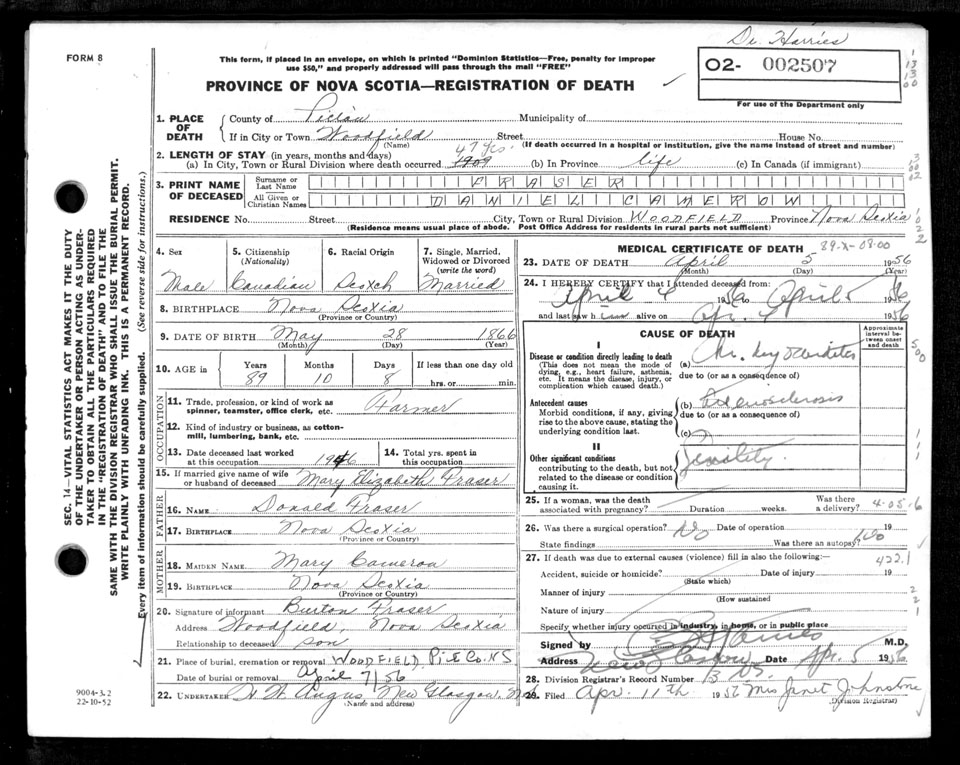 Dr. Harries
FORM 8
This form, if placed in an envelope, on which is printed "Dominion Statistics—Free, penalty for improper
use $50," and properly addressed will pass through the mail "FREE"
O2- 002507
PROVINCE OF NOVA SCOTIA—REGISTRATION OF DEATH
For use of the Department only
1. PLACE OF DEATH
County of Pictou Municipality of
If in City or Town Woodfield Street House No.
(Name) (If death occurred in a hospital or institution, give the name instead of street and number)
2. LENGTH OF STAY (in years, months and days) 47 yrs.
(a) In City, Town or Rural Division where death occurred. 1909 (b) In Province life (c) In Canada (if immigrant)
3. PRINT NAME OF DECEASED
Surname or Last Name FRASER
All Given or Christian Names DANIEL CAMERON
RESIDENCE No. Street City, Town or Rural Division WOODFIELD Province Nova Scotia
(Residence means usual place of abode. Post Office Address for residents in rural parts not sufficient)
SEC. 14—VITAL STATISTICS ACT MAKES IT THE DUTY
OF THE UNDERTAKER OR PERSON ACTING AS UNDER-
TAKER TO OBTAIN ALL THE PARTICULARS REQUIRED
IN THE "REGISTRATION OF DEATH" AND TO FILE THE
SAME WITH THE DIVISION REGISTRAR WHO SHALL ISSUE THE BURIAL PERMIT.
WRITE PLAINLY WITH UNFADING INK. THIS IS A PERMANENT RECORD.
Every item of information should be carefully supplied. (See reverse side for instructions.)
4. Sex
Male
5. Citizenship
(Nationality)
Canadian
6. Racial Origin
Scotch
7. Single, Married,
Widowed or Divorced
(write the word)
Married
8. BIRTHPLACE Nova Scotia
(Province or Country)
9. DATE OF BIRTH May 28 1866
(Month) (Day) (Year)
10. AGE in Years Months Days If less than one day old
89 10 8 hrs. or min.
OCCUPATION
11. Trade, profession, or kind of work as
spinner, teamster, office clerk, etc. Farmer
12. Kind of industry or business, as cotton-
mill, lumbering, bank, etc.
13. Date deceased last worked
at this occupation 1946
14. Total yrs. spent in
this occupation
15. If married give name of wife
or husband of deceased Mary Elizabeth Fraser
FATHER
16. NAME Donald Fraser
17. BIRTHPLACE Nova Scotia
(Province or Country)
MOTHER
18. MAIDEN NAME Mary Cameron
19. BIRTHPLACE Nova Scotia
(Province or Country)
20. Signature of informant Burton Fraser
Address Woodfield, Nova Scotia
Relationship to deceased son
21. Place of burial, cremation or removal WOODFIELD Pict Co. N S
Date of burial or removal April 7/56
22. UNDERTAKER Angus, New Glasgow, N
(Name and address)
9004-3.2
22-10-52
MEDICAL CERTIFICATE OF DEATH 89-X-0800
23. DATE OF DEATH April 5 1956
(Month) (Day) (Year)
24. I HEREBY CERTIFY that I attended deceased from:
April 4 1956 to April 5 1956
and last saw h alive on Apr. 1956
CAUSE OF DEATH
Approximate
interval be-
tween onset
and death
I
Disease or condition directly leading to death
(This does not mean the mode of
dying, e.g., heart failure, asthenia,
etc. It means the disease, injury, or
complication which caused death.)
(a)
due to (or as a consequence of)
Antecedent causes
Morbid conditions, if any, giving
rise to the above cause, stating the
underlying condition last.
(b)
due to (or as a consequence of)
(c)
II
Other significant conditions
contributing to the death, but not
related to the disease or condition
causing it.
Senility
25. If a woman, was the death
associated with pregnancy? Duration weeks. Was there
a delivery? 4-05-6
26. Was there a surgical operation? No Date of operation 19
State findings Was there an autopsy? No
27. If death was due to external causes (violence) fill in also the following:— 422.1
Accident, suicide or homicide? Date of injury 19
(State which)
Manner of injury
(How sustained
Nature of injury
Specify whether injury occured in industry, in home, or in public place
Signed by Harries M.D.
Address New Glasgow Date Apr. 5 1956
28. Division Registrar's Record Number
29. Filed Apr. 11th 1956 Mrs Janet Johnstone
(Division Registrar)